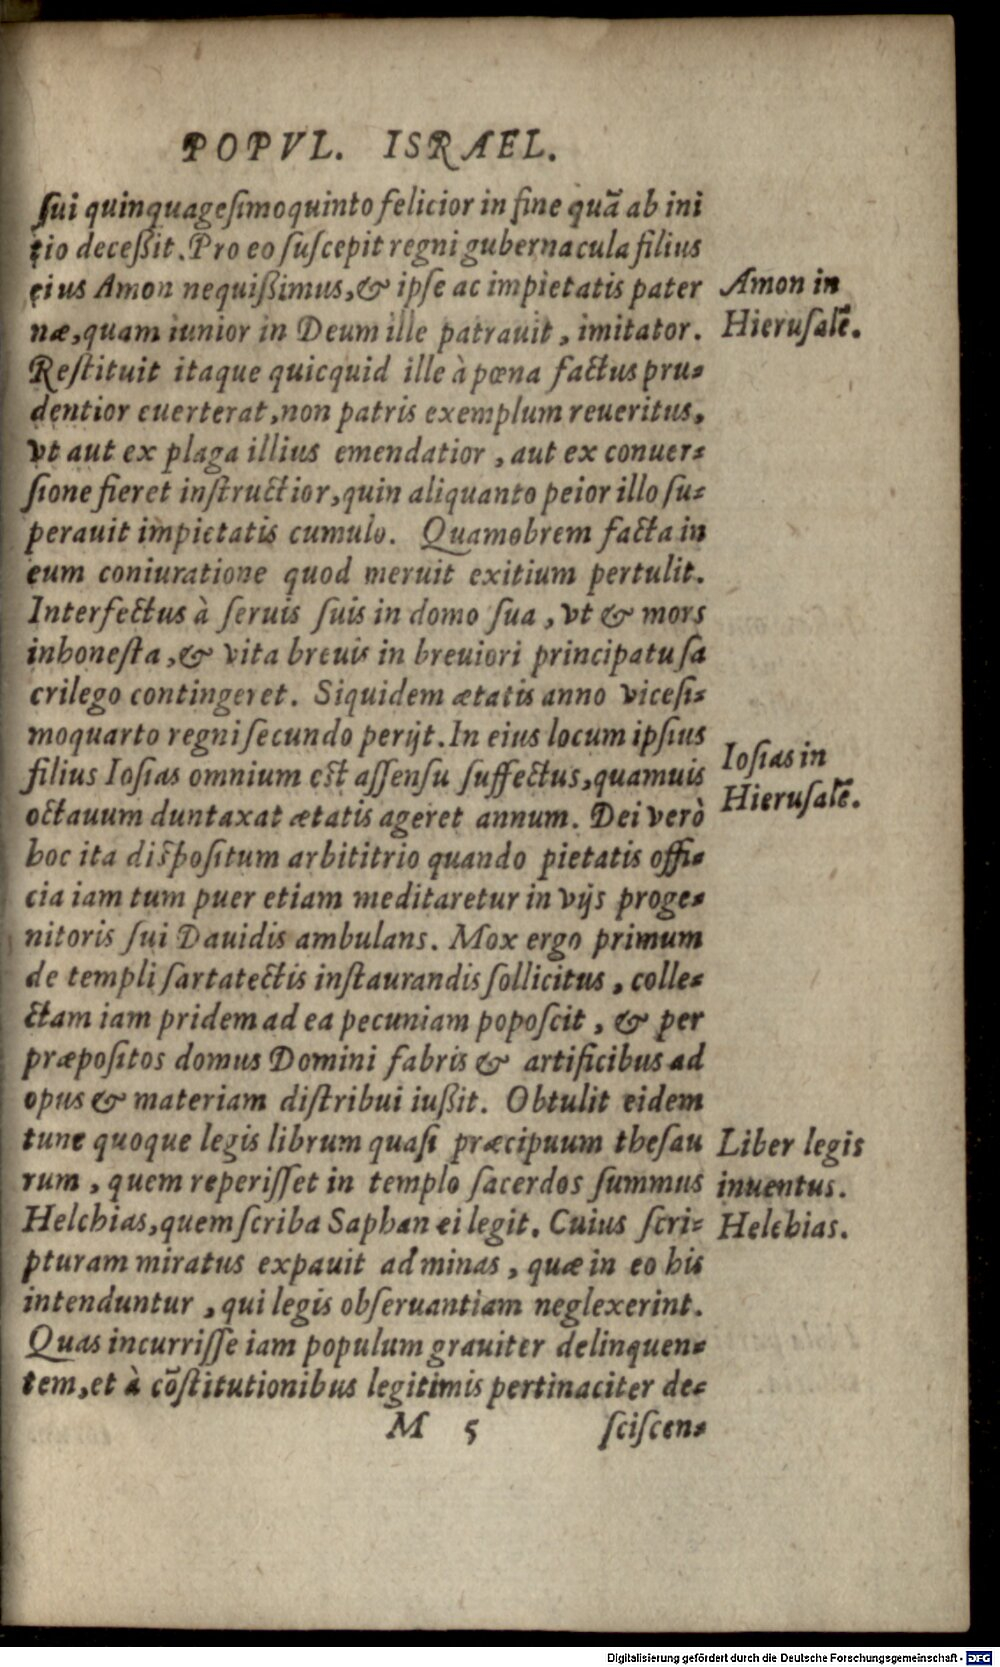 POPVL. ISRAEL.
ſui quinquageſimoquinto felicior in fine quã ab ini
tio deceßit. Pro eo ſuſcepit regni gubernacula filius
eius Amon nequißimus, & ipſe ac impietatis pater
næ, quam iunior in Deum ille patrauit, imitator.
Amon in
Hieruſalẽ.
Reſtituit itaque quicquid ille à pœna factus pru-
dentior euerterat, non patris exemplum reueritus,
vt aut ex plaga illius emendatior, aut ex conuer-
ſione fieret inſtructior, quin aliquanto peior illo ſu-
perauit impietatis cumulo. Quamobrem facta in
eum coniuratione quod meruit exitium pertulit.
Interfectus à ſeruis ſuis in domo ſua, vt & mors
inhoneſta, & vita breuis in breuiori principatu ſa
crilego contingeret. Siquidem ætatis anno viceſi-
moquarto regni ſecundo perijt. In eius locum ipſius
filius Ioſias omnium eſt aſſenſu ſuffectus, quamuis
octauum duntaxat ætatis ageret annum. Dei verò
Ioſias in
Hieruſalẽ.
hoc ita diſpoſitum arbititrio quando pietatis offi-
cia iam tum puer etiam meditaretur in vijs proge-
nitoris ſui Dauidis ambulans. Mox ergo primum
de templi ſartatectis inſtaurandis ſollicitus, colle-
ctam iam pridem ad ea pecuniam popoſcit, & per
præpoſitos domus Domini fabris & artificibus ad
opus & materiam diſtribui iußit. Obtulit eidem
tunc quoque legis librum quaſi præcipuum theſau
rum, quem reperiſſet in templo ſacerdos ſummus
Helchias, quem ſcriba Saphan ei legit. Cuius ſcri-
Liber legis
inuentus.
Helchias.
pturam miratus expauit ad minas, quæ in eo his
intenduntur, qui legis obſeruantiam neglexerint.
Quas incurriſſe iam populum grauiter delinquen-
tem, et à cõſtitutionibus legitimis pertinaciter de-
M 5 ſciſcen-
Digitalisierung gefördert durch die Deutsche Forschungsgemeinschaft - DFG